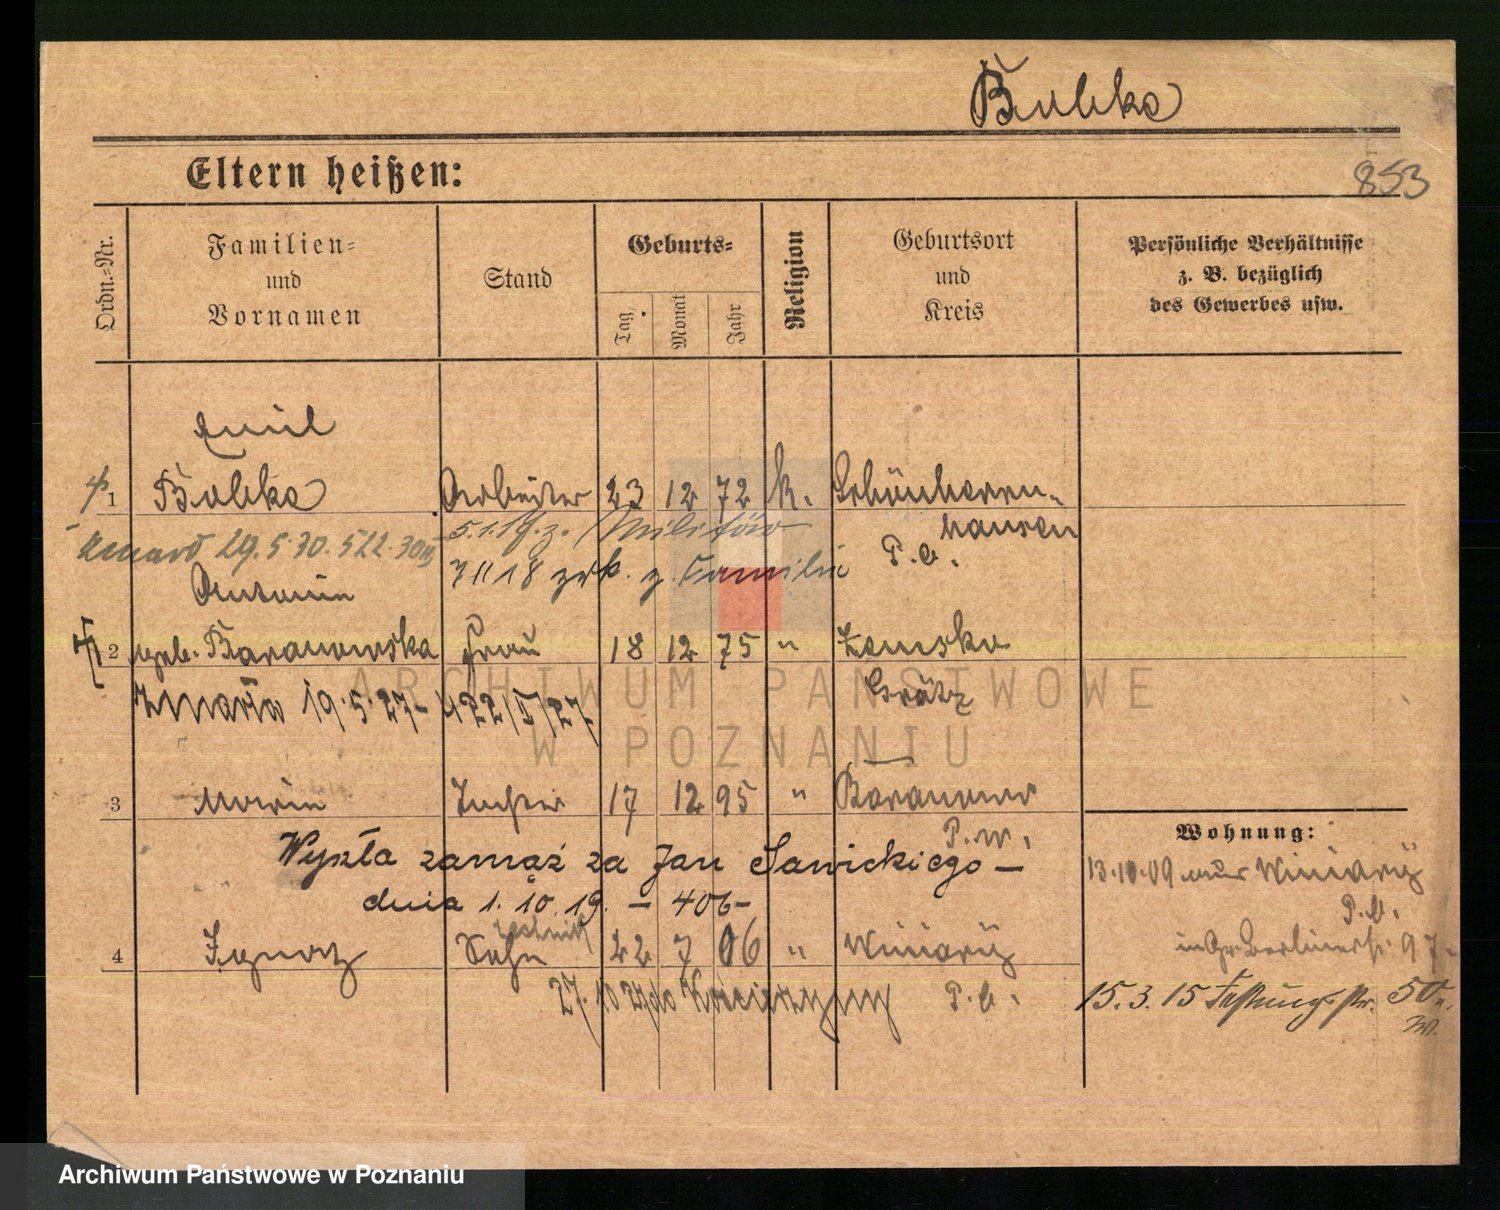 Bubka
Eltern heißen:
853
Ordn.-Nr.
Familien-
und
Vornamen
Stand
Geburts-
Tag
Monat
Jahr
Religion
Geburtsort
und
Kreis
Persönliche Verhältnisse
z. B. bezüglich
des Gewerbes usw.
Emil
1 Bubka Arbeiter 23 12 72 k. Schönherrn-
hausen
P. O.
umarł 29.5.30. 522.30
5.1.19. z. Militär
7 11 18 zrk. z. Familie
Antonie
2 geb. Baranowska Frau 18 12 75 " Zemsko
Grätz
Zmarła 19.5.27 - 422/V/27
ARCHIWUM PAŃSTWOWE
W POZNANIU
3 Marie Tochter 17 12 95 " Baranowo
P. W.
Wyszła zamąż za Jan Sawickiego -
dnia 1.10.19. - 406 -
4 Ignatz Sohn 22 7 06 " Winiary
technik
P. O.
27.10.27 do
Wohnung:
13.10.09 aus Winiary
P. O.
in Gr. Berlinerstr. 97.
15.3.15 Festungsstr. 50
W.
Archiwum Państwowe w Poznaniu